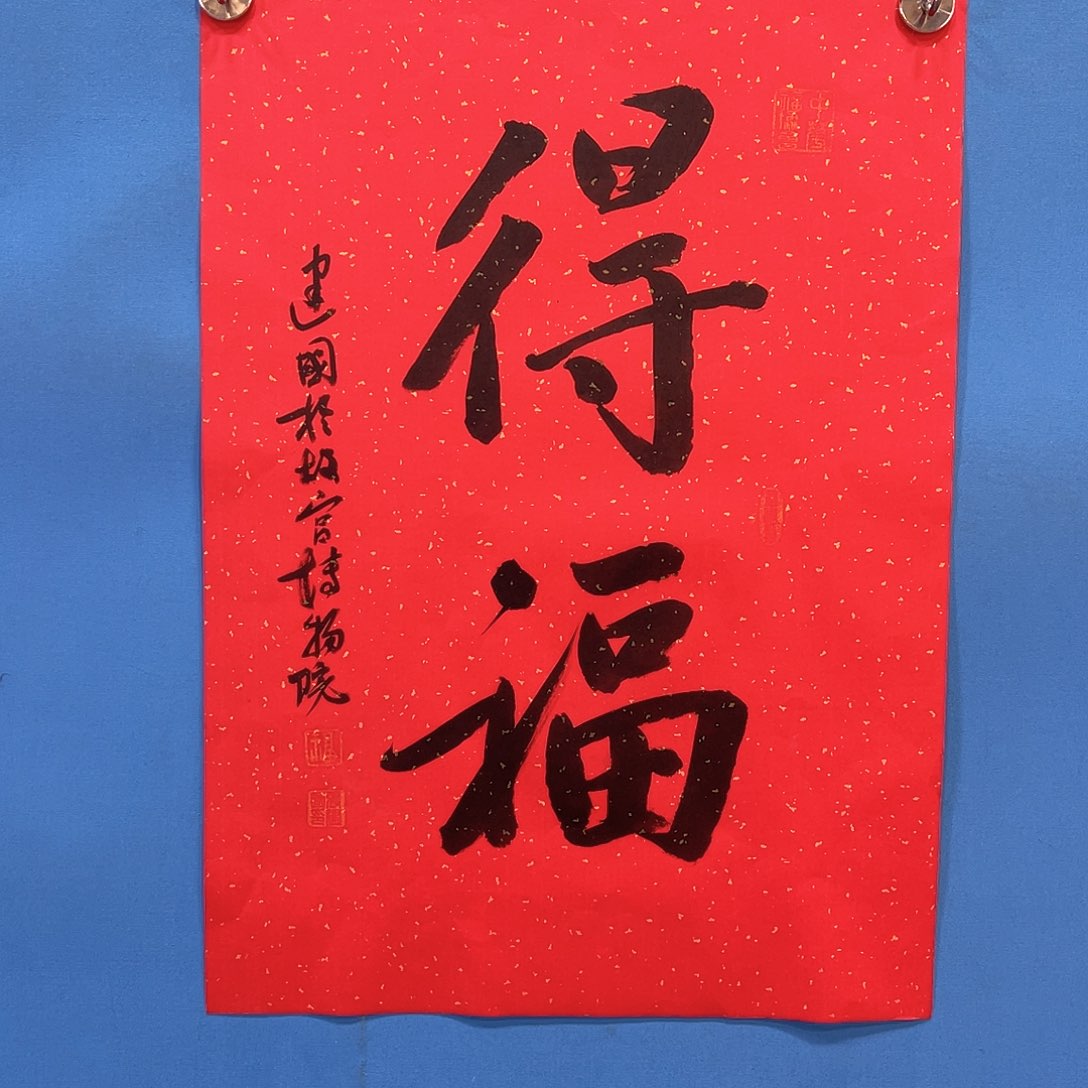 得福
建國於故宫博物院